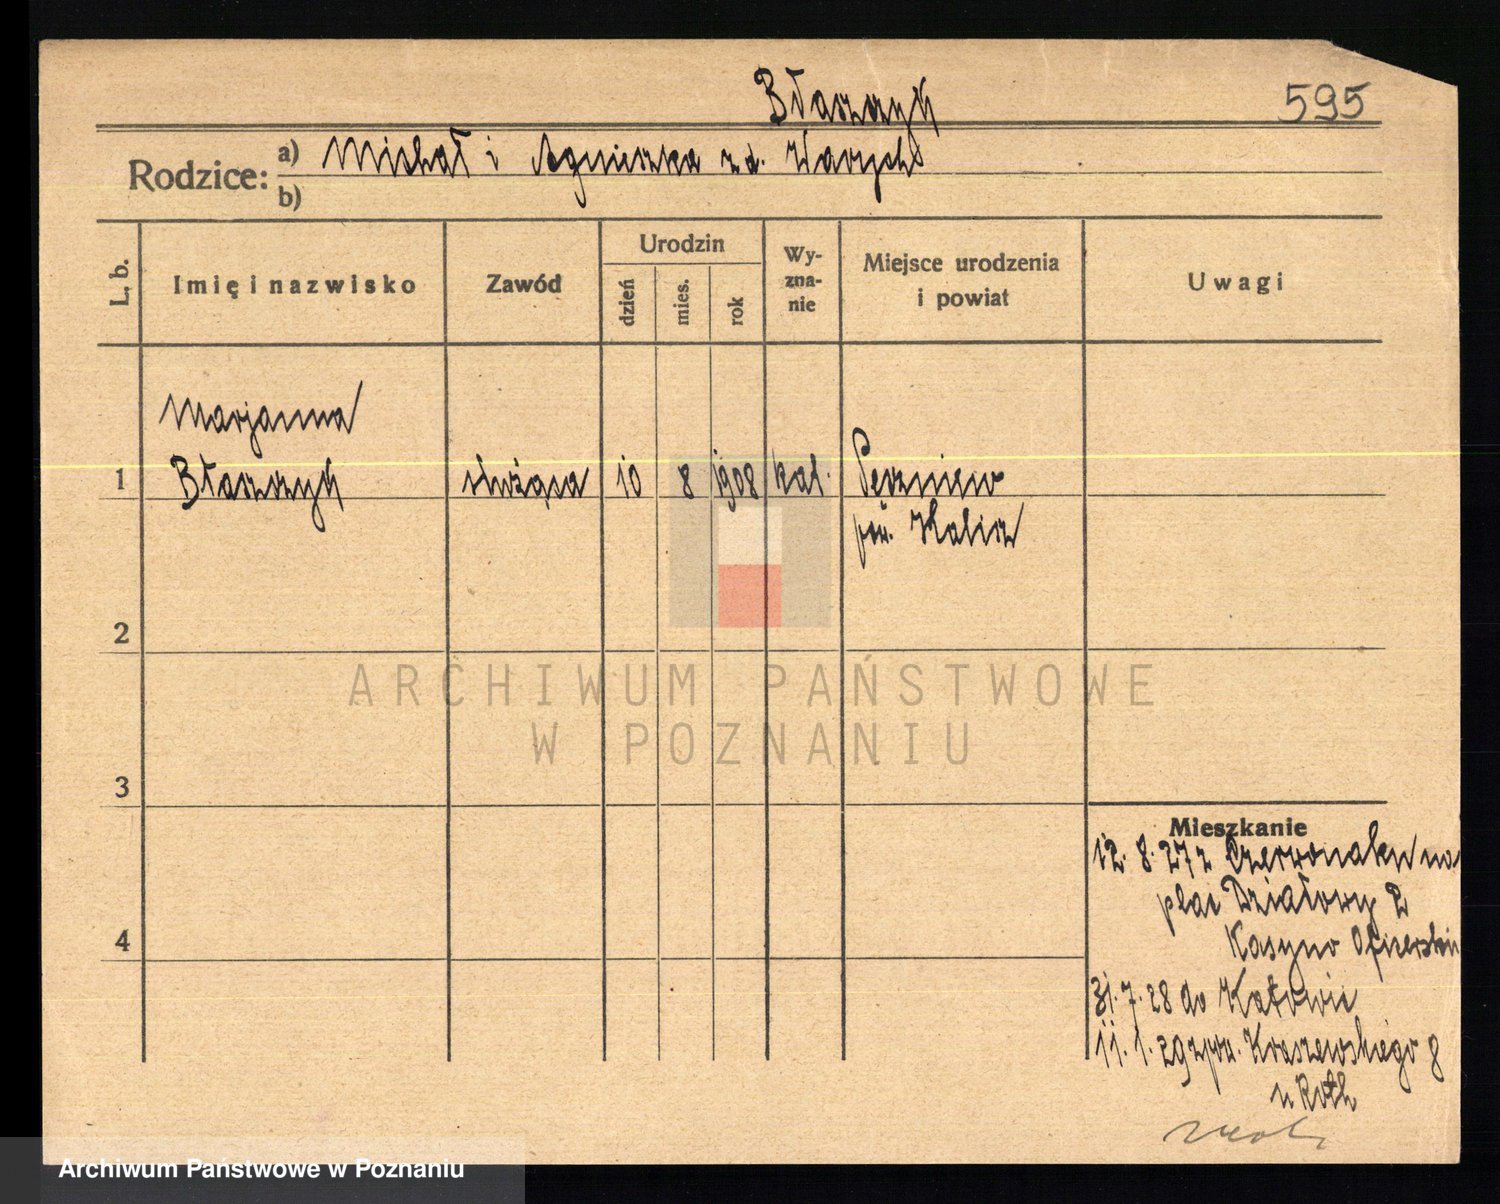 Błaszczyk
595
Rodzice:
a) Michał i Agnieszka z d.
b)
L. b.
Imię i nazwisko
Zawód
Urodzin
dzień
mies.
rok
Wy-
zna-
nie
Miejsce urodzenia
i powiat
Uwagi
Marjanna
1 Błaszczyk służąca 10 8 1908 kat.
pow. Kalisz
2
3
4
Mieszkanie
12. 8. 27 z Czerwonaku na
plac Działowy 2
Kasyno Oficerskie
31. 7. 28 do Katowic
11. 1. 29 z pow. Kraszewskiego 8
u Roth
ARCHIWUM PAŃSTWOWE
W POZNANIU
Archiwum Państwowe w Poznaniu